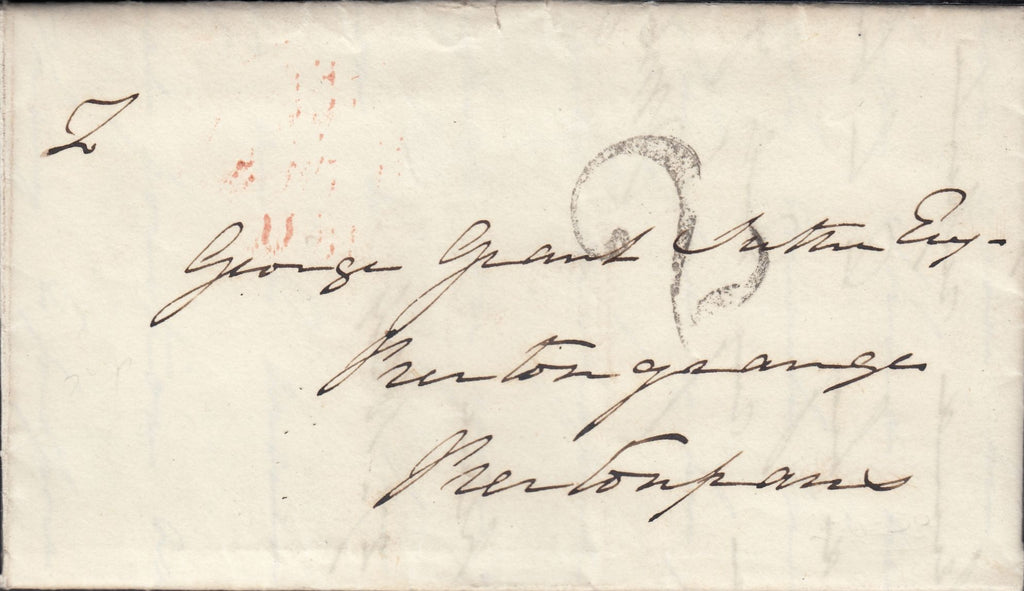 2
George Grant Suttie Esq.
Prestongrange
Prestonpans